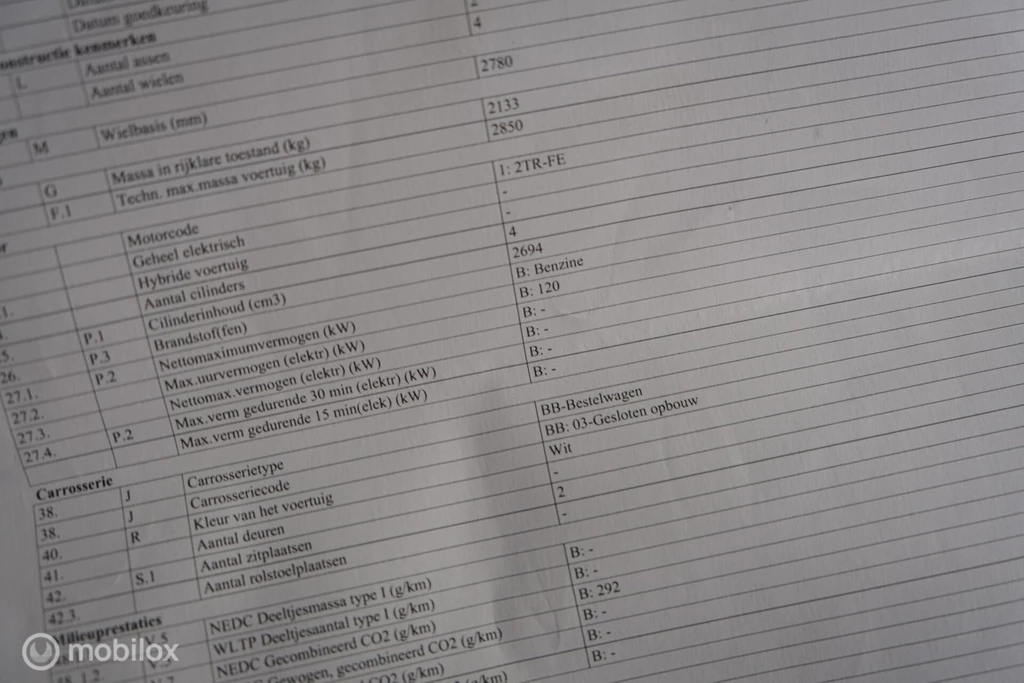 Datum goedkeuring
onstructie kenmerken
L Aantal assen 2
Aantal wielen 4
M Wielbasis (mm) 2780
G Massa in rijklare toestand (kg) 2133
F.1 Techn. max.massa voertuig (kg) 2850
Motorcode 1: 2TR-FE
Geheel elektrisch -
Hybride voertuig -
Aantal cilinders 4
P.1 Cilinderinhoud (cm3) 2694
P.3 Brandstof(fen) B: Benzine
26. P.2 Nettomaximumvermogen (kW) B: 120
27.1. Max.uurvermogen (elektr) (kW) B: -
27.2. Nettomax.vermogen (elektr) (kW) B: -
27.3. Max.verm gedurende 30 min (elektr) (kW) B: -
27.4. P.2 Max.verm gedurende 15 min(elek) (kW) B: -
Carrosserie
38. J Carrosserietype BB-Bestelwagen
38. J Carrosseriecode BB: 03-Gesloten opbouw
40. R Kleur van het voertuig Wit
41. Aantal deuren -
42. S.1 Aantal zitplaatsen 2
42.3. Aantal rolstoelplaatsen -
Milieuprestaties
NEDC Deeltjesmassa type I (g/km) B: -
WLTP Deeltjesaantal type I (g/km) B: -
NEDC Gecombineerd CO2 (g/km) B: 292
Gewogen, gecombineerd CO2 (g/km) B: -
CO2 (g/km) B: -
B: -
mobilox